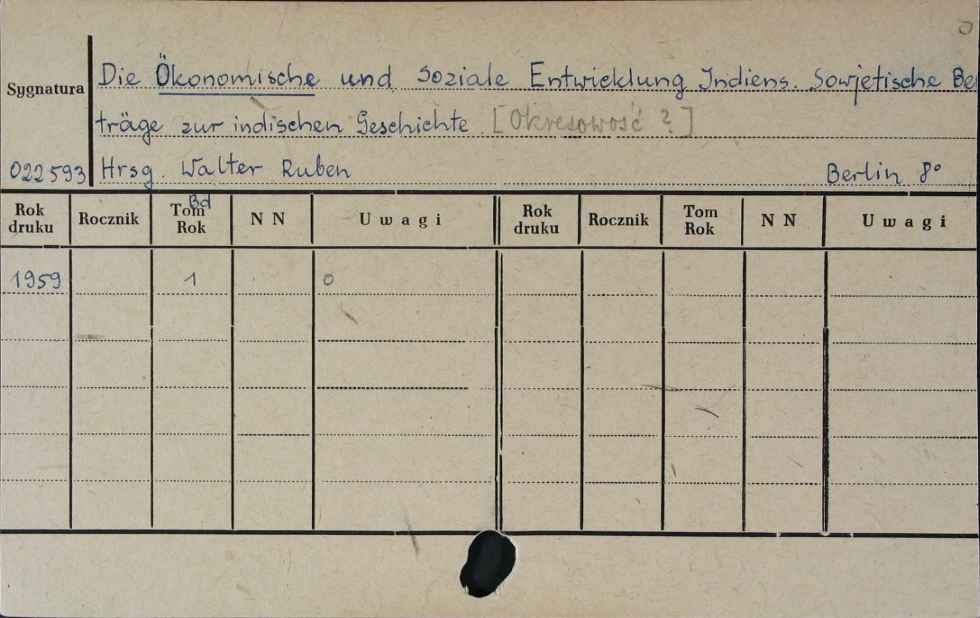 Die Ökonomische und Soziale Entwicklung Indiens. Sowjetische Bei
Sygnatura
träge zur indischen Geschichte [Okresowość ?]
022593 Hrsg. Walter Ruben Berlin 8°
Rok druku Rocznik Tom Bd Rok N N Uwagi Rok druku Rocznik Tom Rok N N Uwagi
1959 1 0